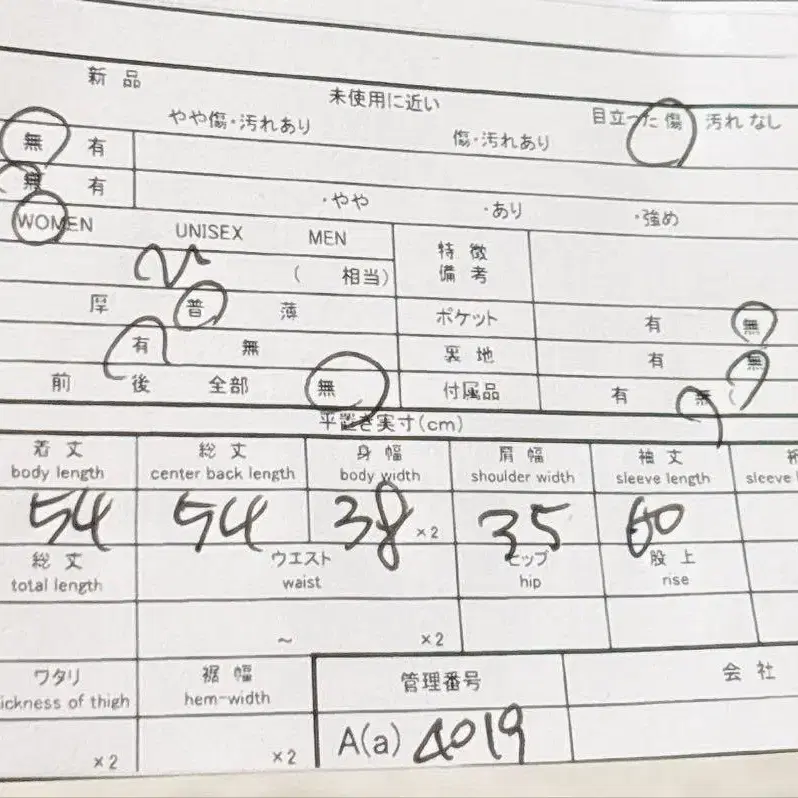 新品 未使用に近い 目立った傷 汚れなし
やや傷・汚れあり 傷・汚れあり
無 有
無 有 ・やや ・あり ・強め
WOMEN UNISEX MEN
特徴
備考
( 相当)
厚 普 薄 ポケット 有 無
有 無 裏地 有 無
前 後 全部 無 付属品 有 無 (
平置き実寸(cm)
着丈 総丈 身幅 肩幅 袖丈
body length center back length body width shoulder width sleeve length sleeve
54 54 38 ×2 35 60
総丈 ウエスト ヒップ 股上
total length waist hip rise
~ ×2
ワタリ 裾幅 管理番号 会社
ickness of thigh hem-width
×2 ×2 A(a) 4019